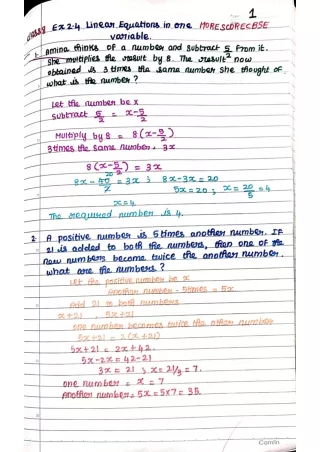 1
CLASS 8 Ex 2.4 Linear Equations in one MORESCORECBSE
variable.
1. Amina thinks of a number and subtract 5/2 from it.
She multiplies the result by 8. The result now
obtained is 3 times the same number she thought of.
what is the number?
Let the number be x
Subtract 5/2 = x-5/2
Multiply by 8 = 8(x-5/2)
3 times the same number = 3x
8(x-5/2) = 3x
8x - 40/2 20 = 3x ; 8x-3x=20
5x=20 ; x=20/5=4
x=4.
The required number is 4.
2. A positive number is 5 times another number. If
21 is added to both the numbers, then one of the
new numbers become twice the another number.
what are the numbers?
Let the positive number be x
Another number - 5times = 5x
Add 21 to both numbers
x+21 , 5x+21
one number becomes twice the other number
5x+21 = 2(x+21)
5x+21 = 2x+42.
5x-2x = 42-21
3x = 21 ; x=21/3=7.
one number = x = 7
Another number=5x=5x7=35.